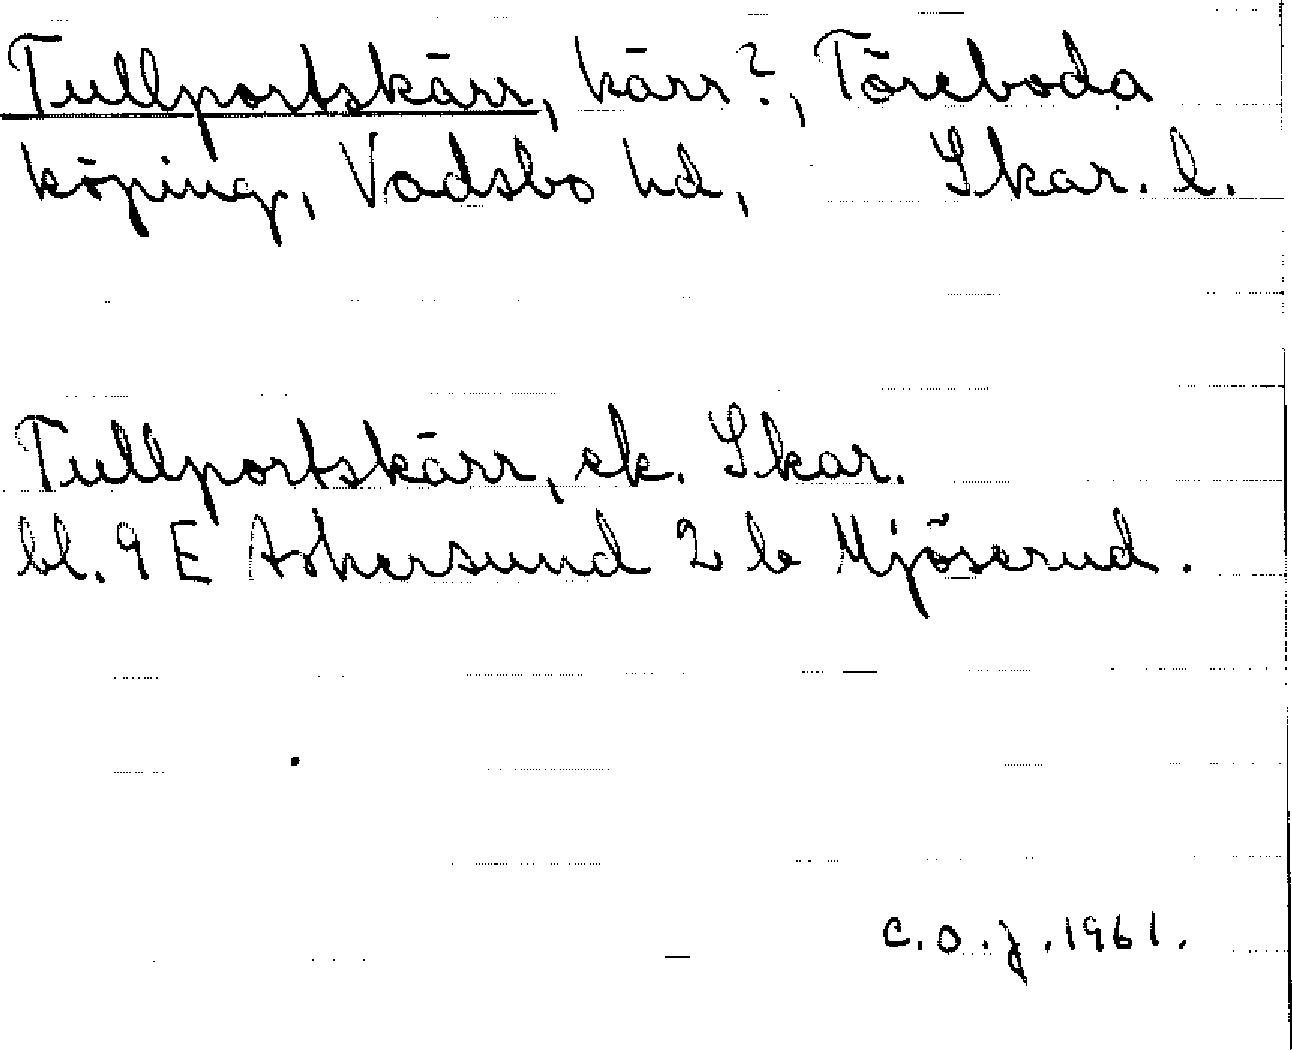 Tullportskärr, kärr?, Töreboda
köping, Vadsbo hd, Skar. l.
Tullportskärr, ek. Skar.
bl. 9 E Askersund 2 b Mjöserud.
C.O.J. 1961.